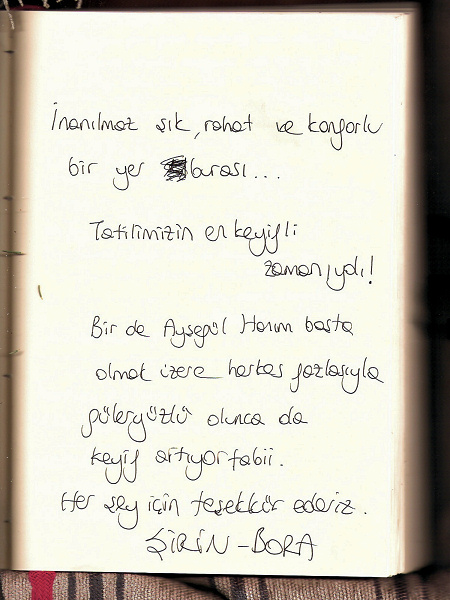 İnanılmaz şık, rahat ve konforlu
bir yer burası...
Tatilimizin en keyifli
zamanıydı!
Bir de Ayşegül Hanım başta
olmak üzere herkes fazlasıyla
güleryüzlü olunca da
keyif artıyor tabii.
Her şey için teşekkür ederiz.
ŞİRİN - BORA